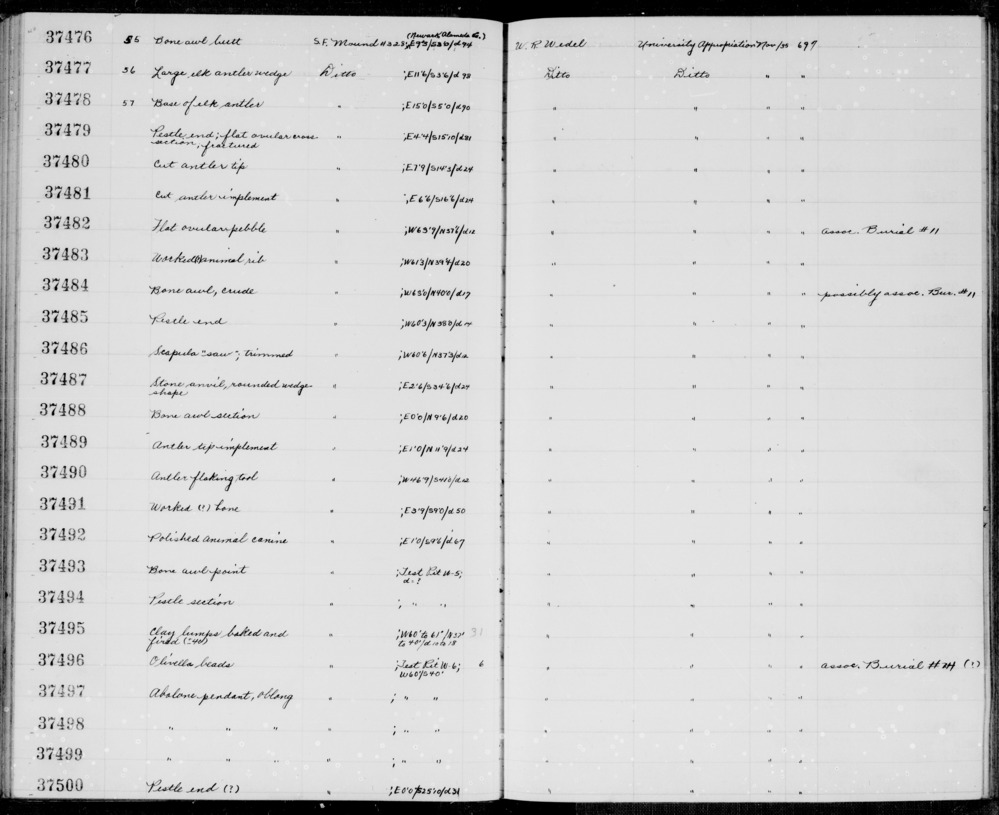 37476 55 Bone awl butt S.F. Mound #328; E9'3/S36'0/d94 (Newark, Alameda Co.) W. R. Wedel University Appropriation Nov/35 697
37477 56 Large elk antler wedge Ditto ;E11'6/S3'6/d98 Ditto Ditto " "
37478 57 Base of elk antler " ;E15'0/S5'0/d90 " " " "
37479 Pestle end; flat ovular cross " ;E4'4/S15'10/d81 " " " "
section, fractured
37480 Cut antler tip " ;E7'9/S14'3/d24 " " " "
37481 Cut antler implement " ;E6'6/S16'6/d24 " " " "
37482 Flat ovular pebble " ;W63'9/N37'6/d12 " " " " assoc. Burial #11
37483 Worked animal rib " ;W61'3/N39'4/d20 " " " "
37484 Bone awl, crude " ;W65'0/N40'0/d17 " " " " possibly assoc. Bur. #11
37485 Pestle end " ;W60'3/N38'0/d14 " " " "
37486 Scapula "saw"; trimmed " ;W60'6/N37'3/d2 " " " "
37487 Stone anvil, rounded wedge- " ;E2'6/S34'6/d24 " " " "
shape
37488 Bone awl section " ;E0'0/N9'6/d20 " " " "
37489 Antler tip implement " ;E1'0/N11'9/d24 " " " "
37490 Antler flaking tool " ;W46'9/S41'0/d12 " " " "
37491 Worked (?) bone " ;E3'9/S9'0/d50 " " " "
37492 Polished animal canine " ;E1'0/S9'6/d67 " " " "
37493 Bone awl point " ;Test Pit W-5; " " " "
d-?
37494 Pestle section " ; " " " " " "
37495 Clay lumps baked and " ;W60' to 61'/N37' 31 " " " "
fired (=40) to 40'/d12 to 18
37496 Olivella beads " ;Test Pit W-6; 6 " " " " assoc. Burial #24 (?)
W60'/S40'
37497 Abalone pendant, oblong " ; " " " " " "
37498 " " " " ; " " " " " "
37499 " " " " ; " " " " " "
37500 Pestle end (?) " ;E0'0/S25'10/d31 " " " "